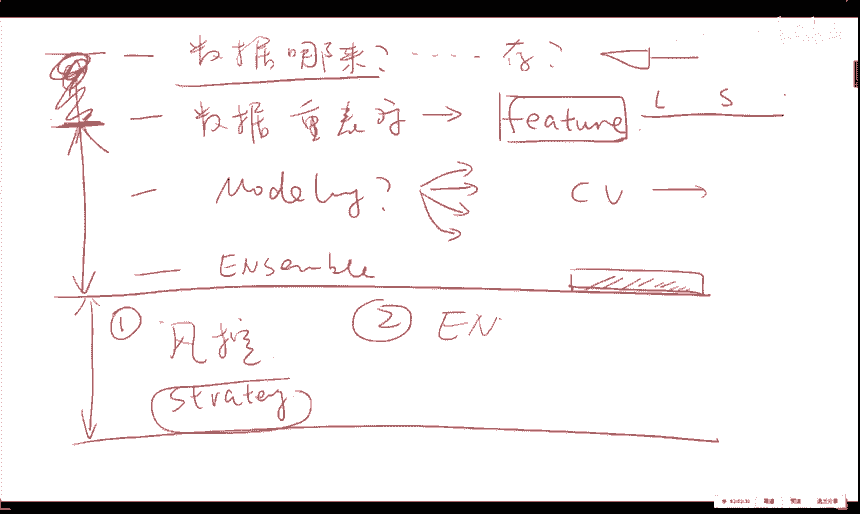 — 数据哪来? ..... 存?
— 数据重表示 → feature L S
— Modeling? CV →
— ENsemble
① 风控 ② EN
Strategy